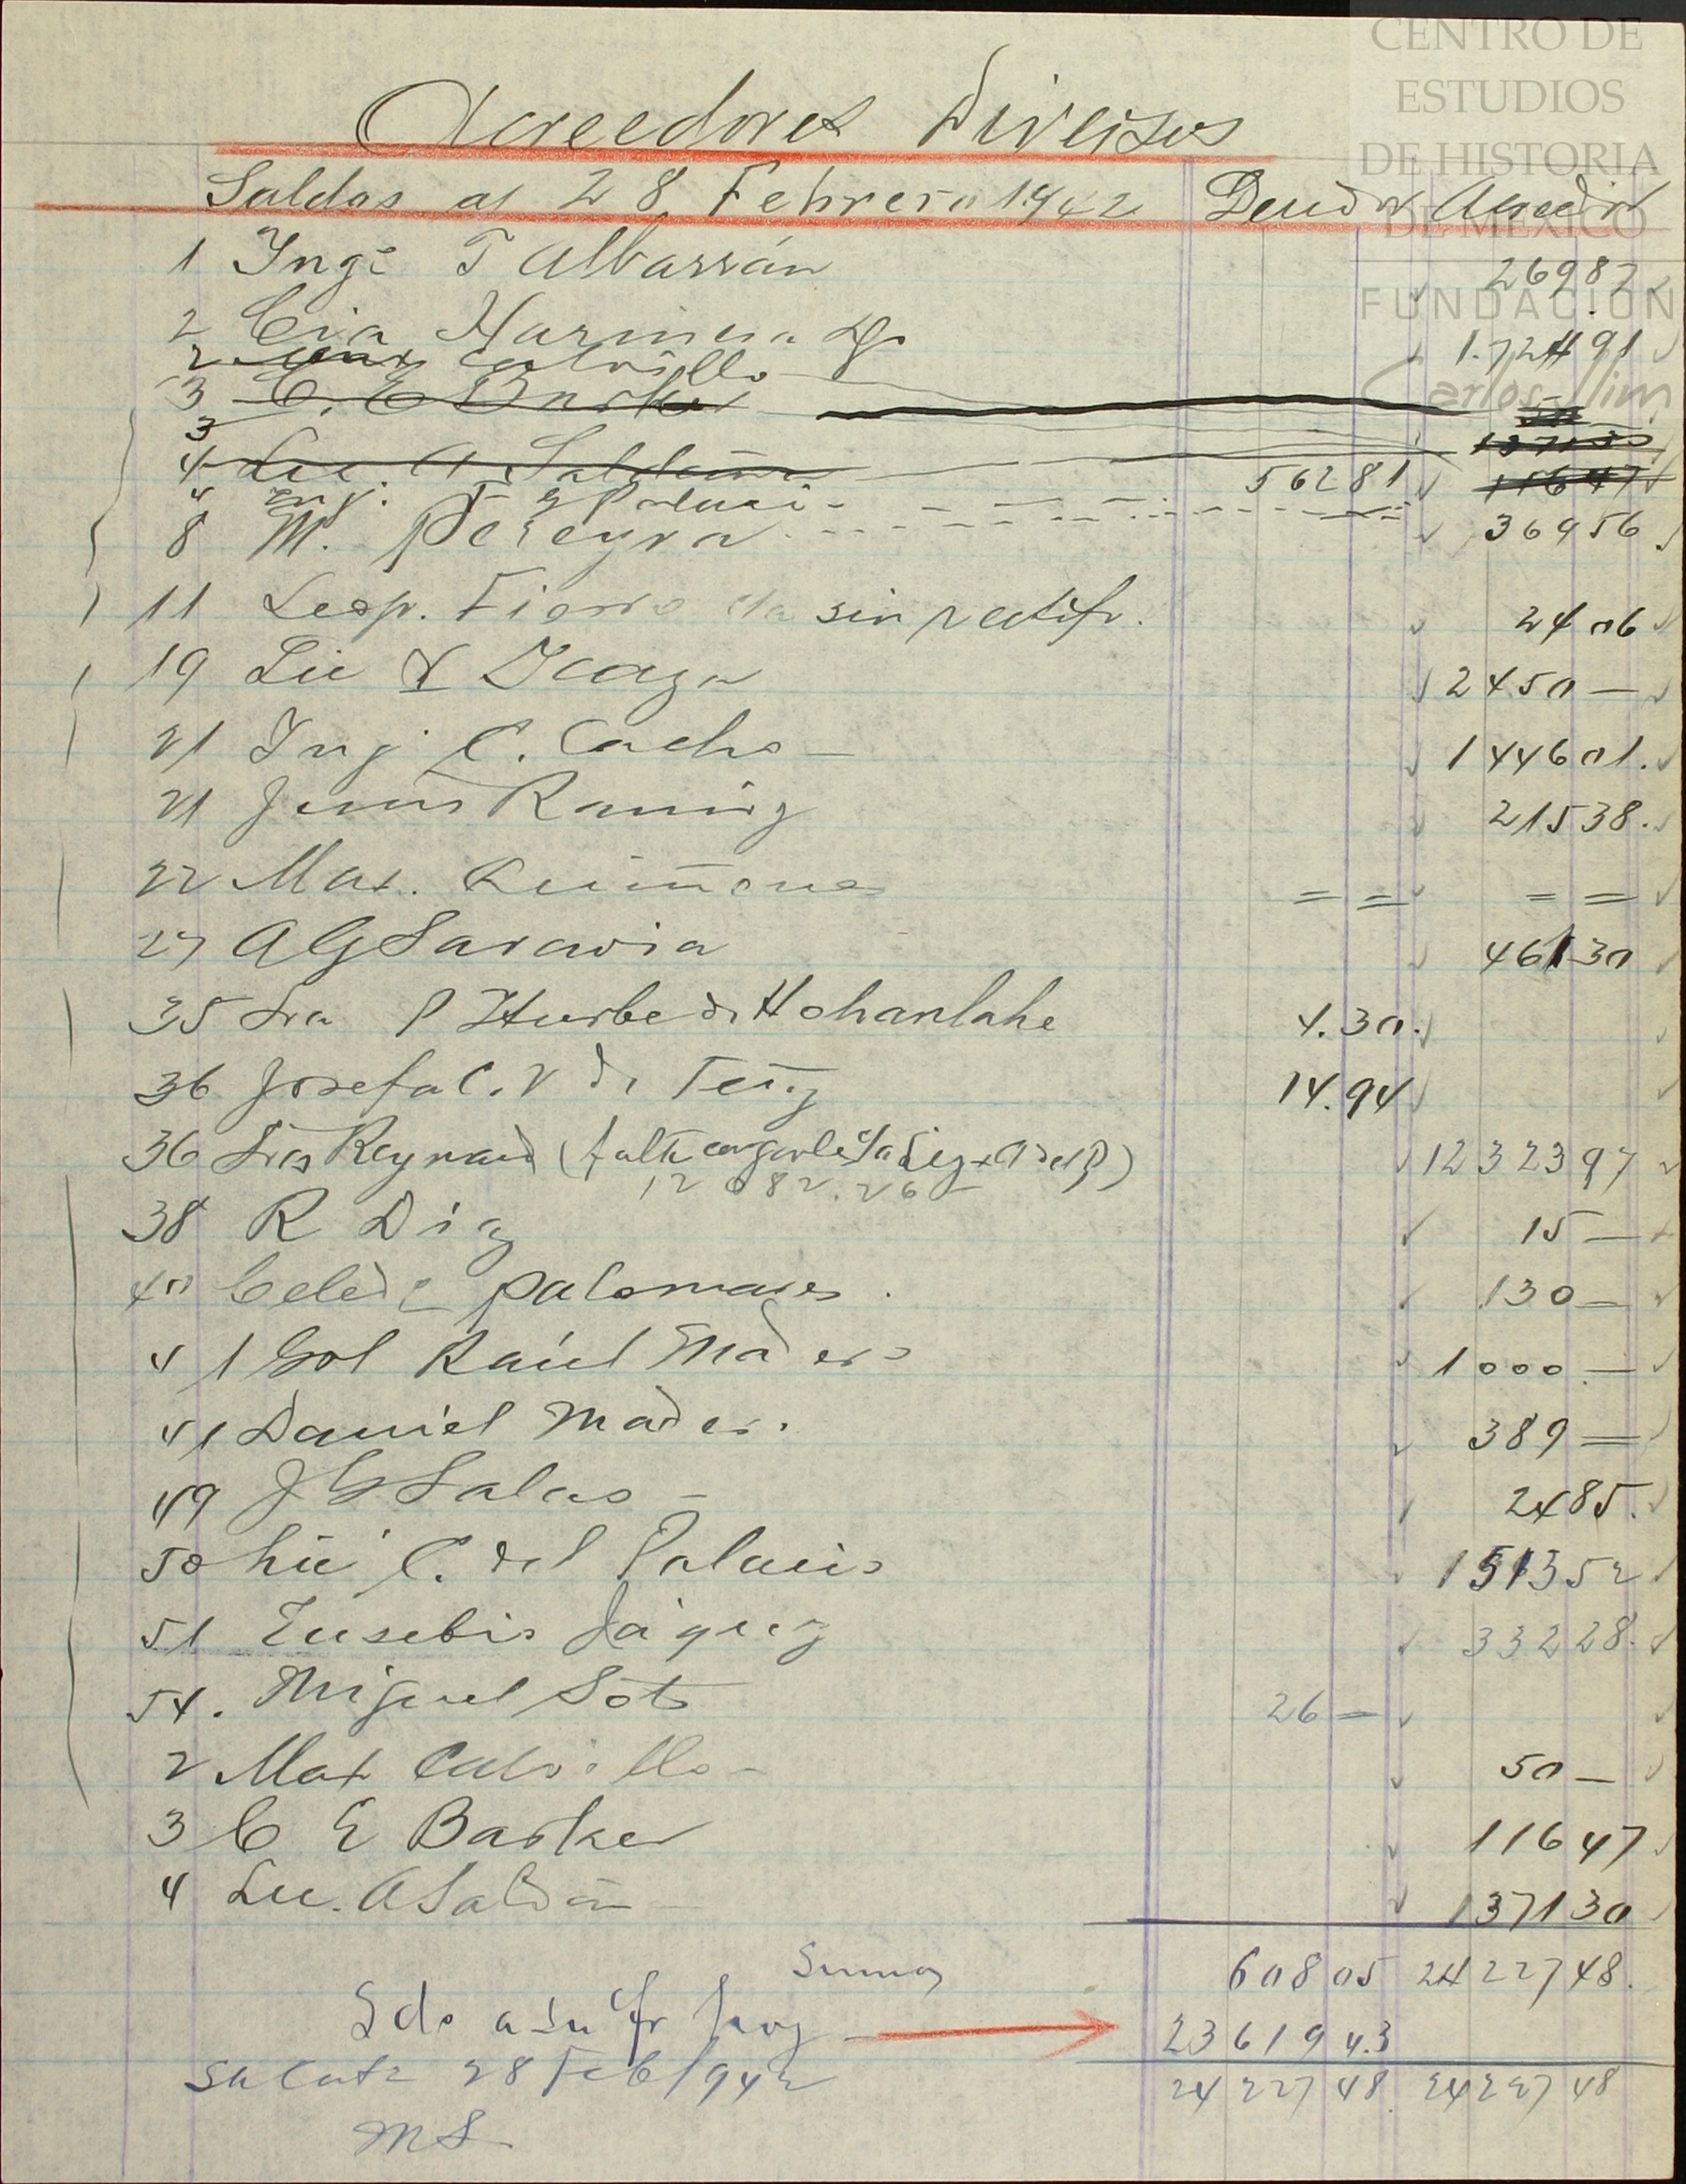 CENTRO DE
ESTUDIOS
DE HISTORIA
DE MEXICO
FUNDACION
Carlos Slim
Acreedores Diversos
Saldos al 28 Febrero 1942 Deudor Acreedor
1 Ing. T Albarrán 26987
2 Cia Harinera 1.72491
2 Calvillo 50
3 C. E Barker
3 137130
4 Lic. A Saldaña 56281 11647
4 Ing.
8 M. Pereyra 36956
11 Leop. Fierro sin rectifr. 2406
19 Lic X Icaza 2450 —
21 Ing. C. Cacho — 144601.
21 Ramirz 21538.
22 Max. = = = =
27 A G Saravia 46130
35 Sra P Iturbe d Hohanlahe 4.30.
36 Josefa C. V d 14.94
36 Sres Reynaud (falta 1232397
12082.26 —
38 R Diaz 15 —
40 Celed palomares. 130 —
41 Gol Raúl Madero 1000 —
41 Daniel Madero. 389 =
49 J G Salas — 2485.
50 Lic C. del Palacio 151352
51 Eusebio Jáquez 33228.
54. Miguel Soto 26 =
2 Max Calvillo — 50 —
3 C E Barker 11647
4 Lic. A Saldaña 137130
Sumas 60805 2422748.
Sdo a su fr hoy 2361943
28 Feb 1942 2422748 2422748
MS